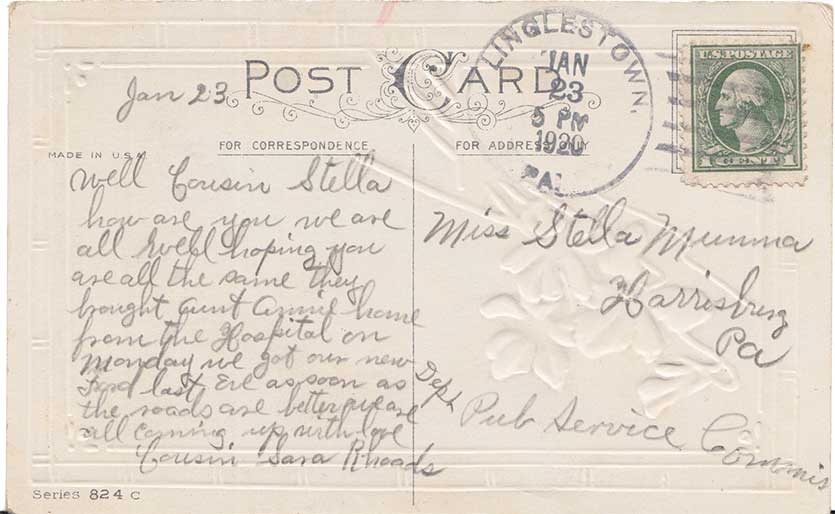 POST CARD
Jan 23
LINGLESTOWN,
JAN
23
5 PM
1920
PA.
U.S. POSTAGE
1 CENTS 1
FOR CORRESPONDENCE
FOR ADDRESS ONLY
MADE IN U.S.A
Well Cousin Stella
how are you we are
all well hoping you
are all the same they
brought aunt Annie home
from the Hospital on
Monday we got our new
Ford last Eve as soon as
the roads are better we are
all coming up with love
Cousin Sara Rhoads
Miss Stella Mumma
Harrisburg
Pa
Dept
Pub Service Commis
Series 824 C